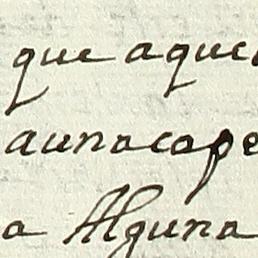 que aque
aunacape
a Alguna